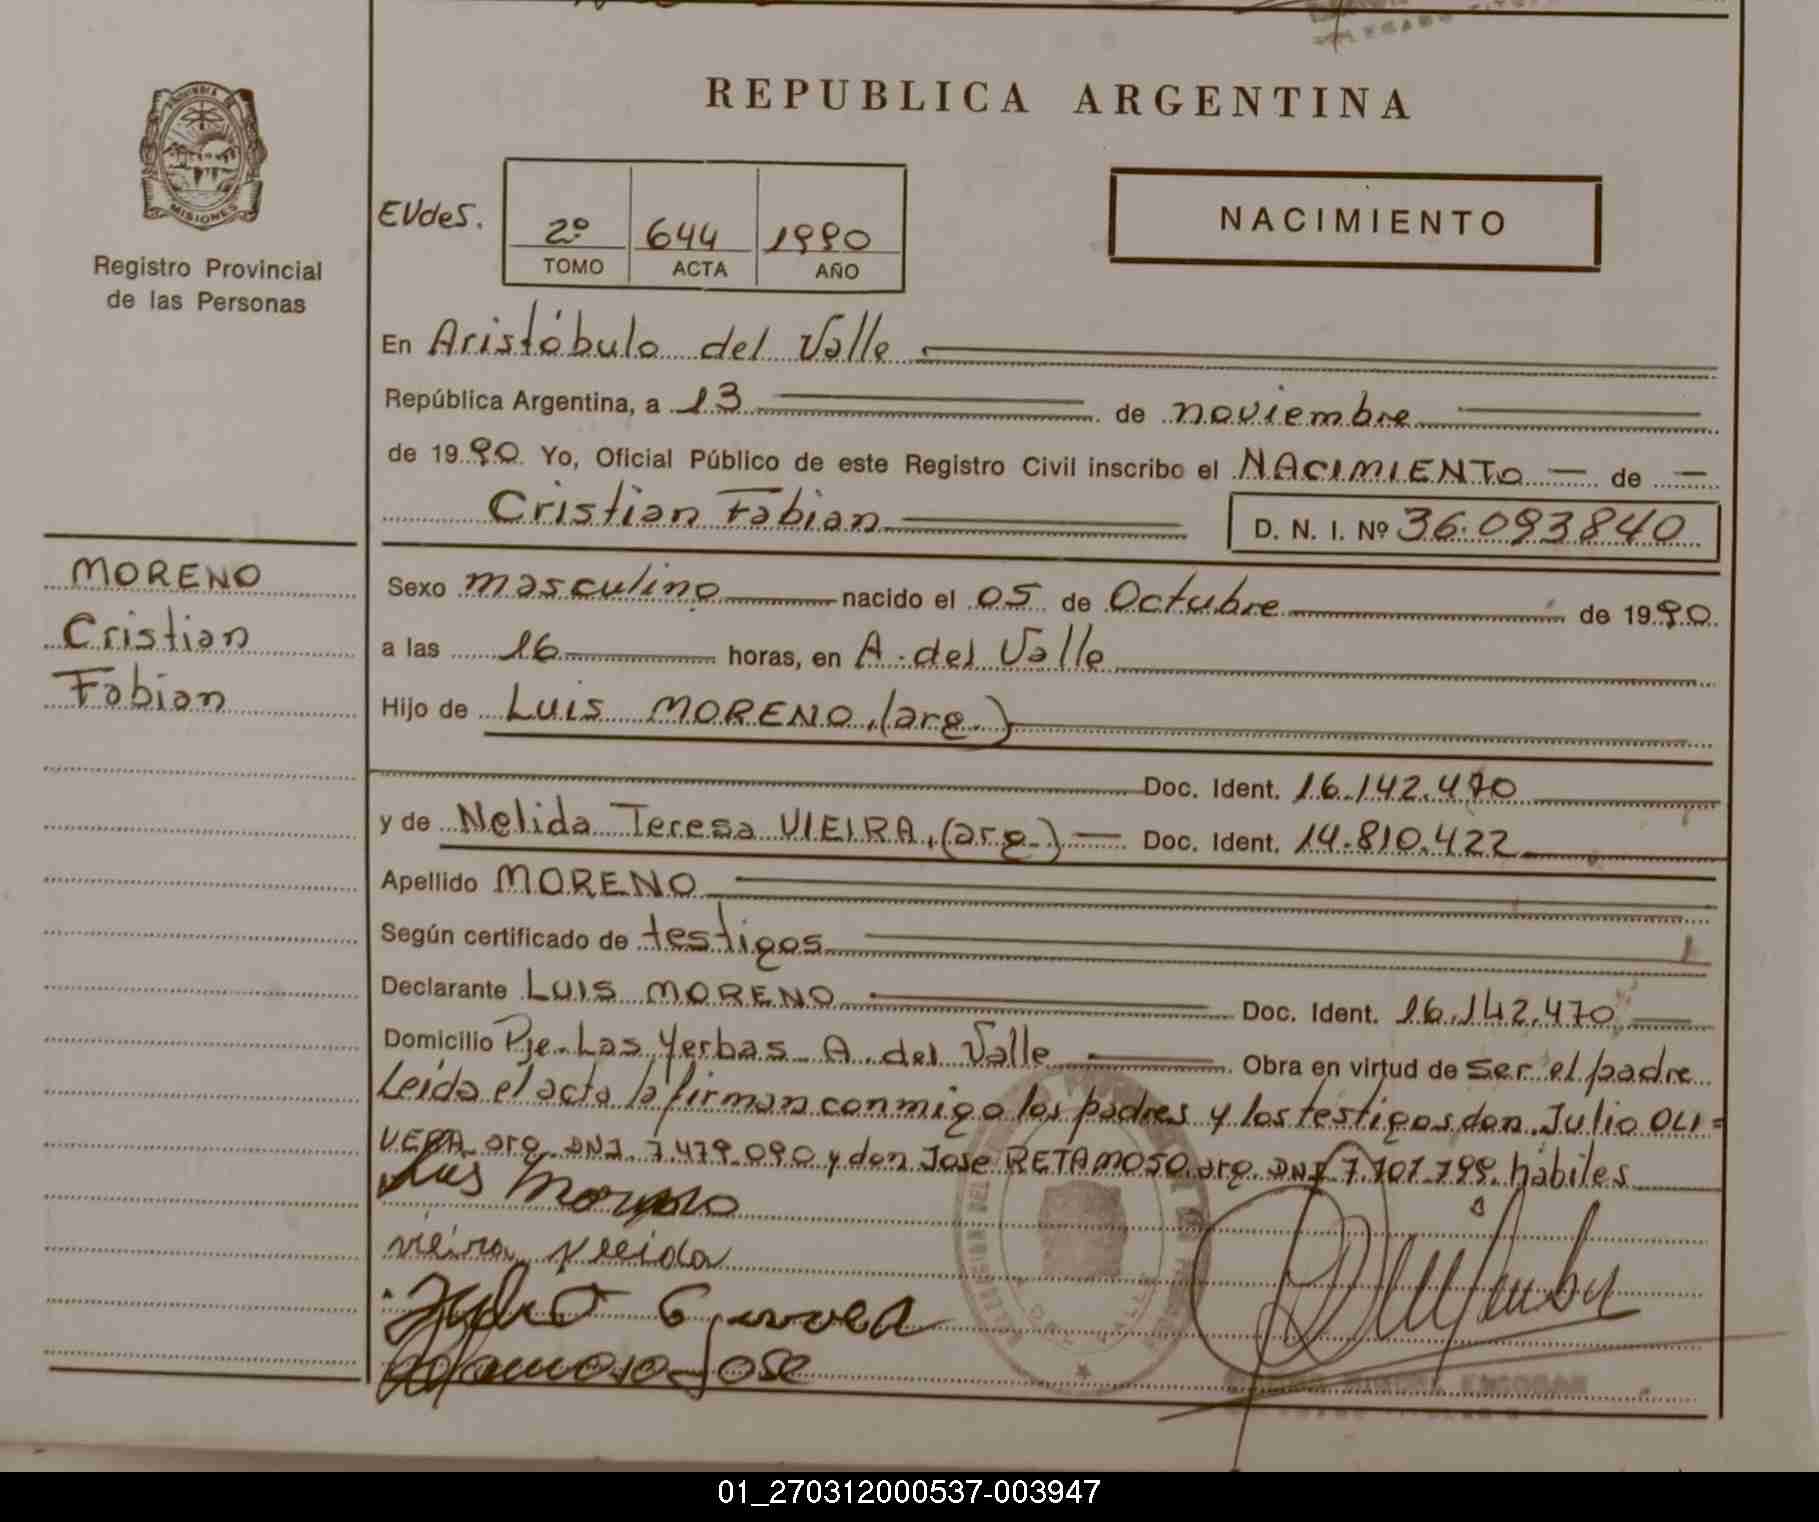 REPUBLICA ARGENTINA
PROVINCIA DE
MISIONES
Registro Provincial
de las Personas
EVdes.
2º 644 1990
TOMO ACTA AÑO
NACIMIENTO
En Aristóbulo del Valle
República Argentina, a 13 de noviembre
de 1990 Yo, Oficial Público de este Registro Civil inscribo el NACIMIENTO de
Cristian Fabian D. N. I. Nº 36.093840
MORENO
Cristian
Fabian
Sexo masculino nacido el 05 de Octubre de 1990
a las 16 horas, en A. del Valle
Hijo de Luis MORENO, (arg.)
Doc. Ident. 16.142.470
y de Nelida Teresa VIEIRA, (arg.) Doc. Ident. 14.810.422
Apellido MORENO
Según certificado de testigos
Declarante LUIS MORENO Doc. Ident. 16.142.470
Domicilio Pje. Las Yerbas A. del Valle Obra en virtud de ser el padre
Leída el acta la firman conmigo los padres y los testigos don Julio OLI=
VERA arg. DNI. 7.479.090 y don Jose RETAMOSO arg. DNI 7.707.799. hábiles
Luis Moreno
vieira
Jose
01_270312000537-003947